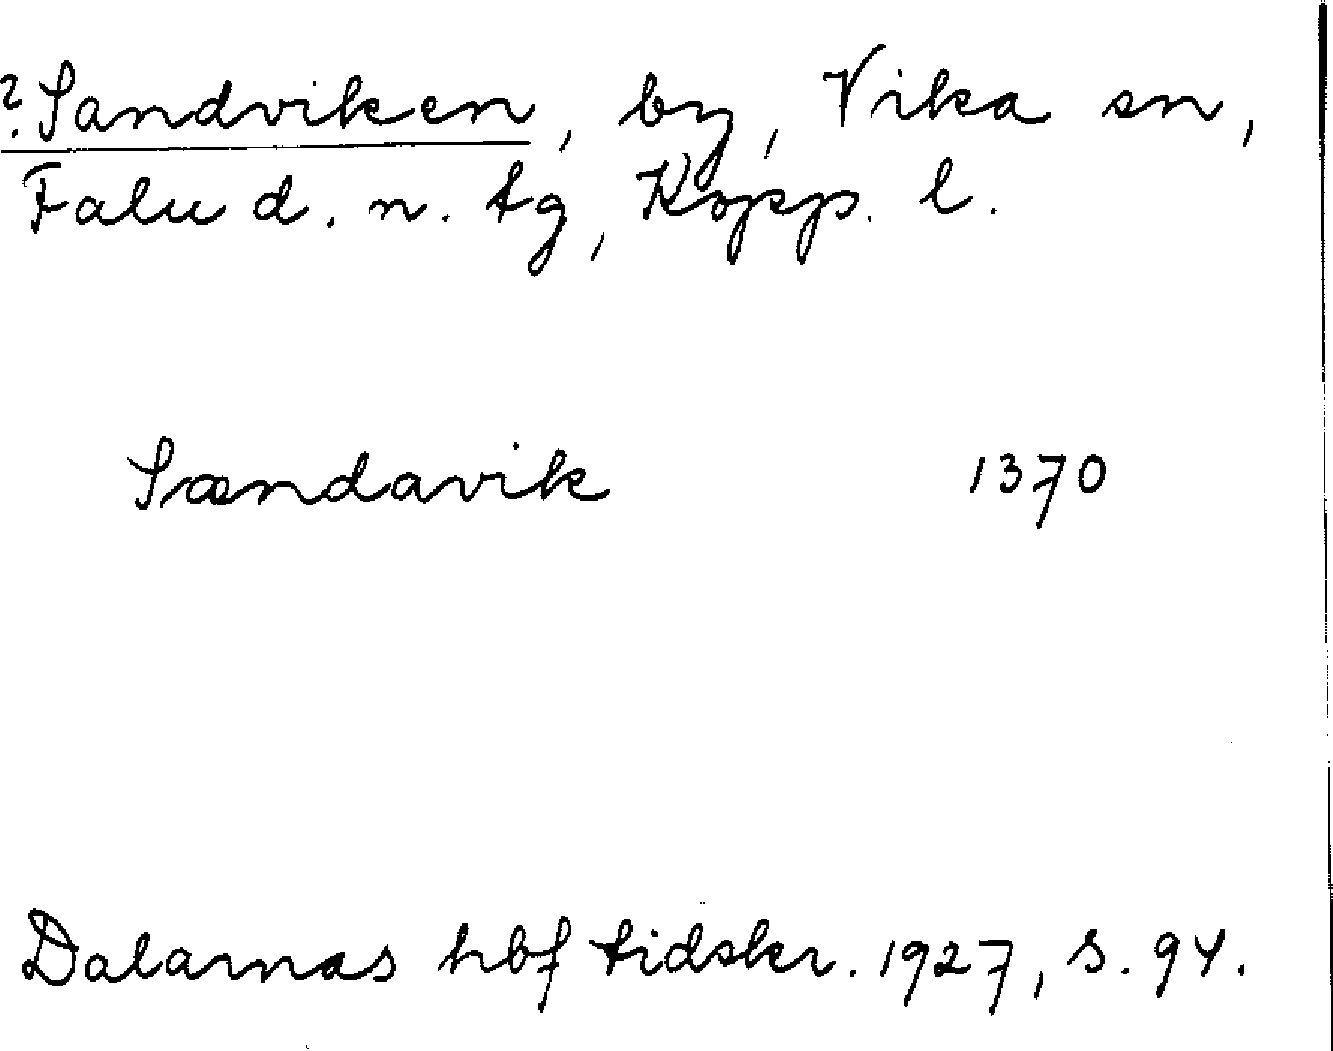 ? Sandviken, by, Vika sn,
Falu d. n. tg, Kopp. l.
Sandavik 1370
Dalarnas hbf tidskr. 1927, s. 94.